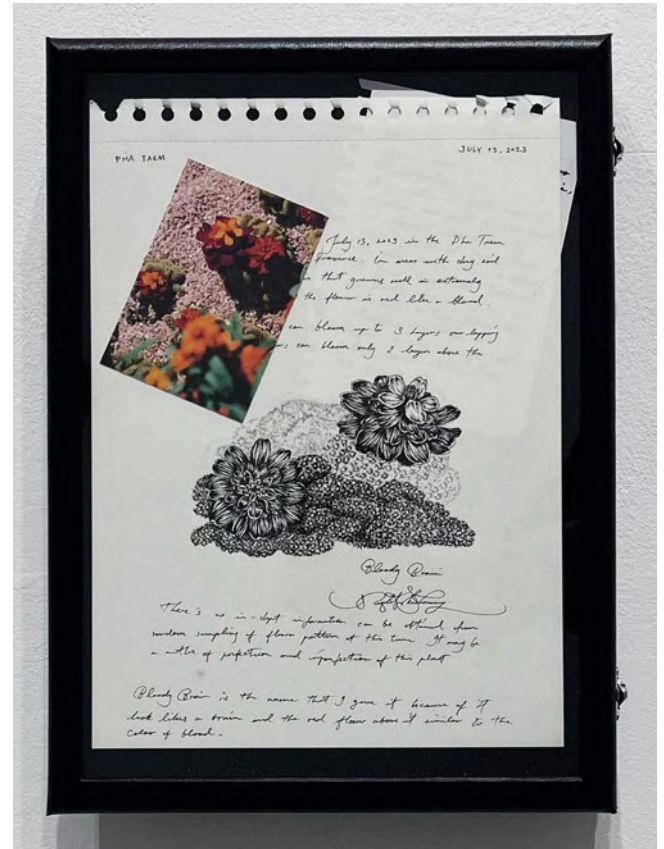 PHA TAEM
JULY 13, 2023
July 13, 2023 in the Pha Taem
province. In areas with dry soil
that grows well in extremely
the flower is red like a blood.
can bloom up to 3 layers overlapping
can bloom only 2 layers above the
Bloody Brain
There's no in-dept information can be obtained from
random sampling of flower pattern at this time. It may be
a of perfection and imperfection of this plant
Bloody Brain is the name that I gave it because of it
look likes a brain and the red flower above it similar to the
color of blood.